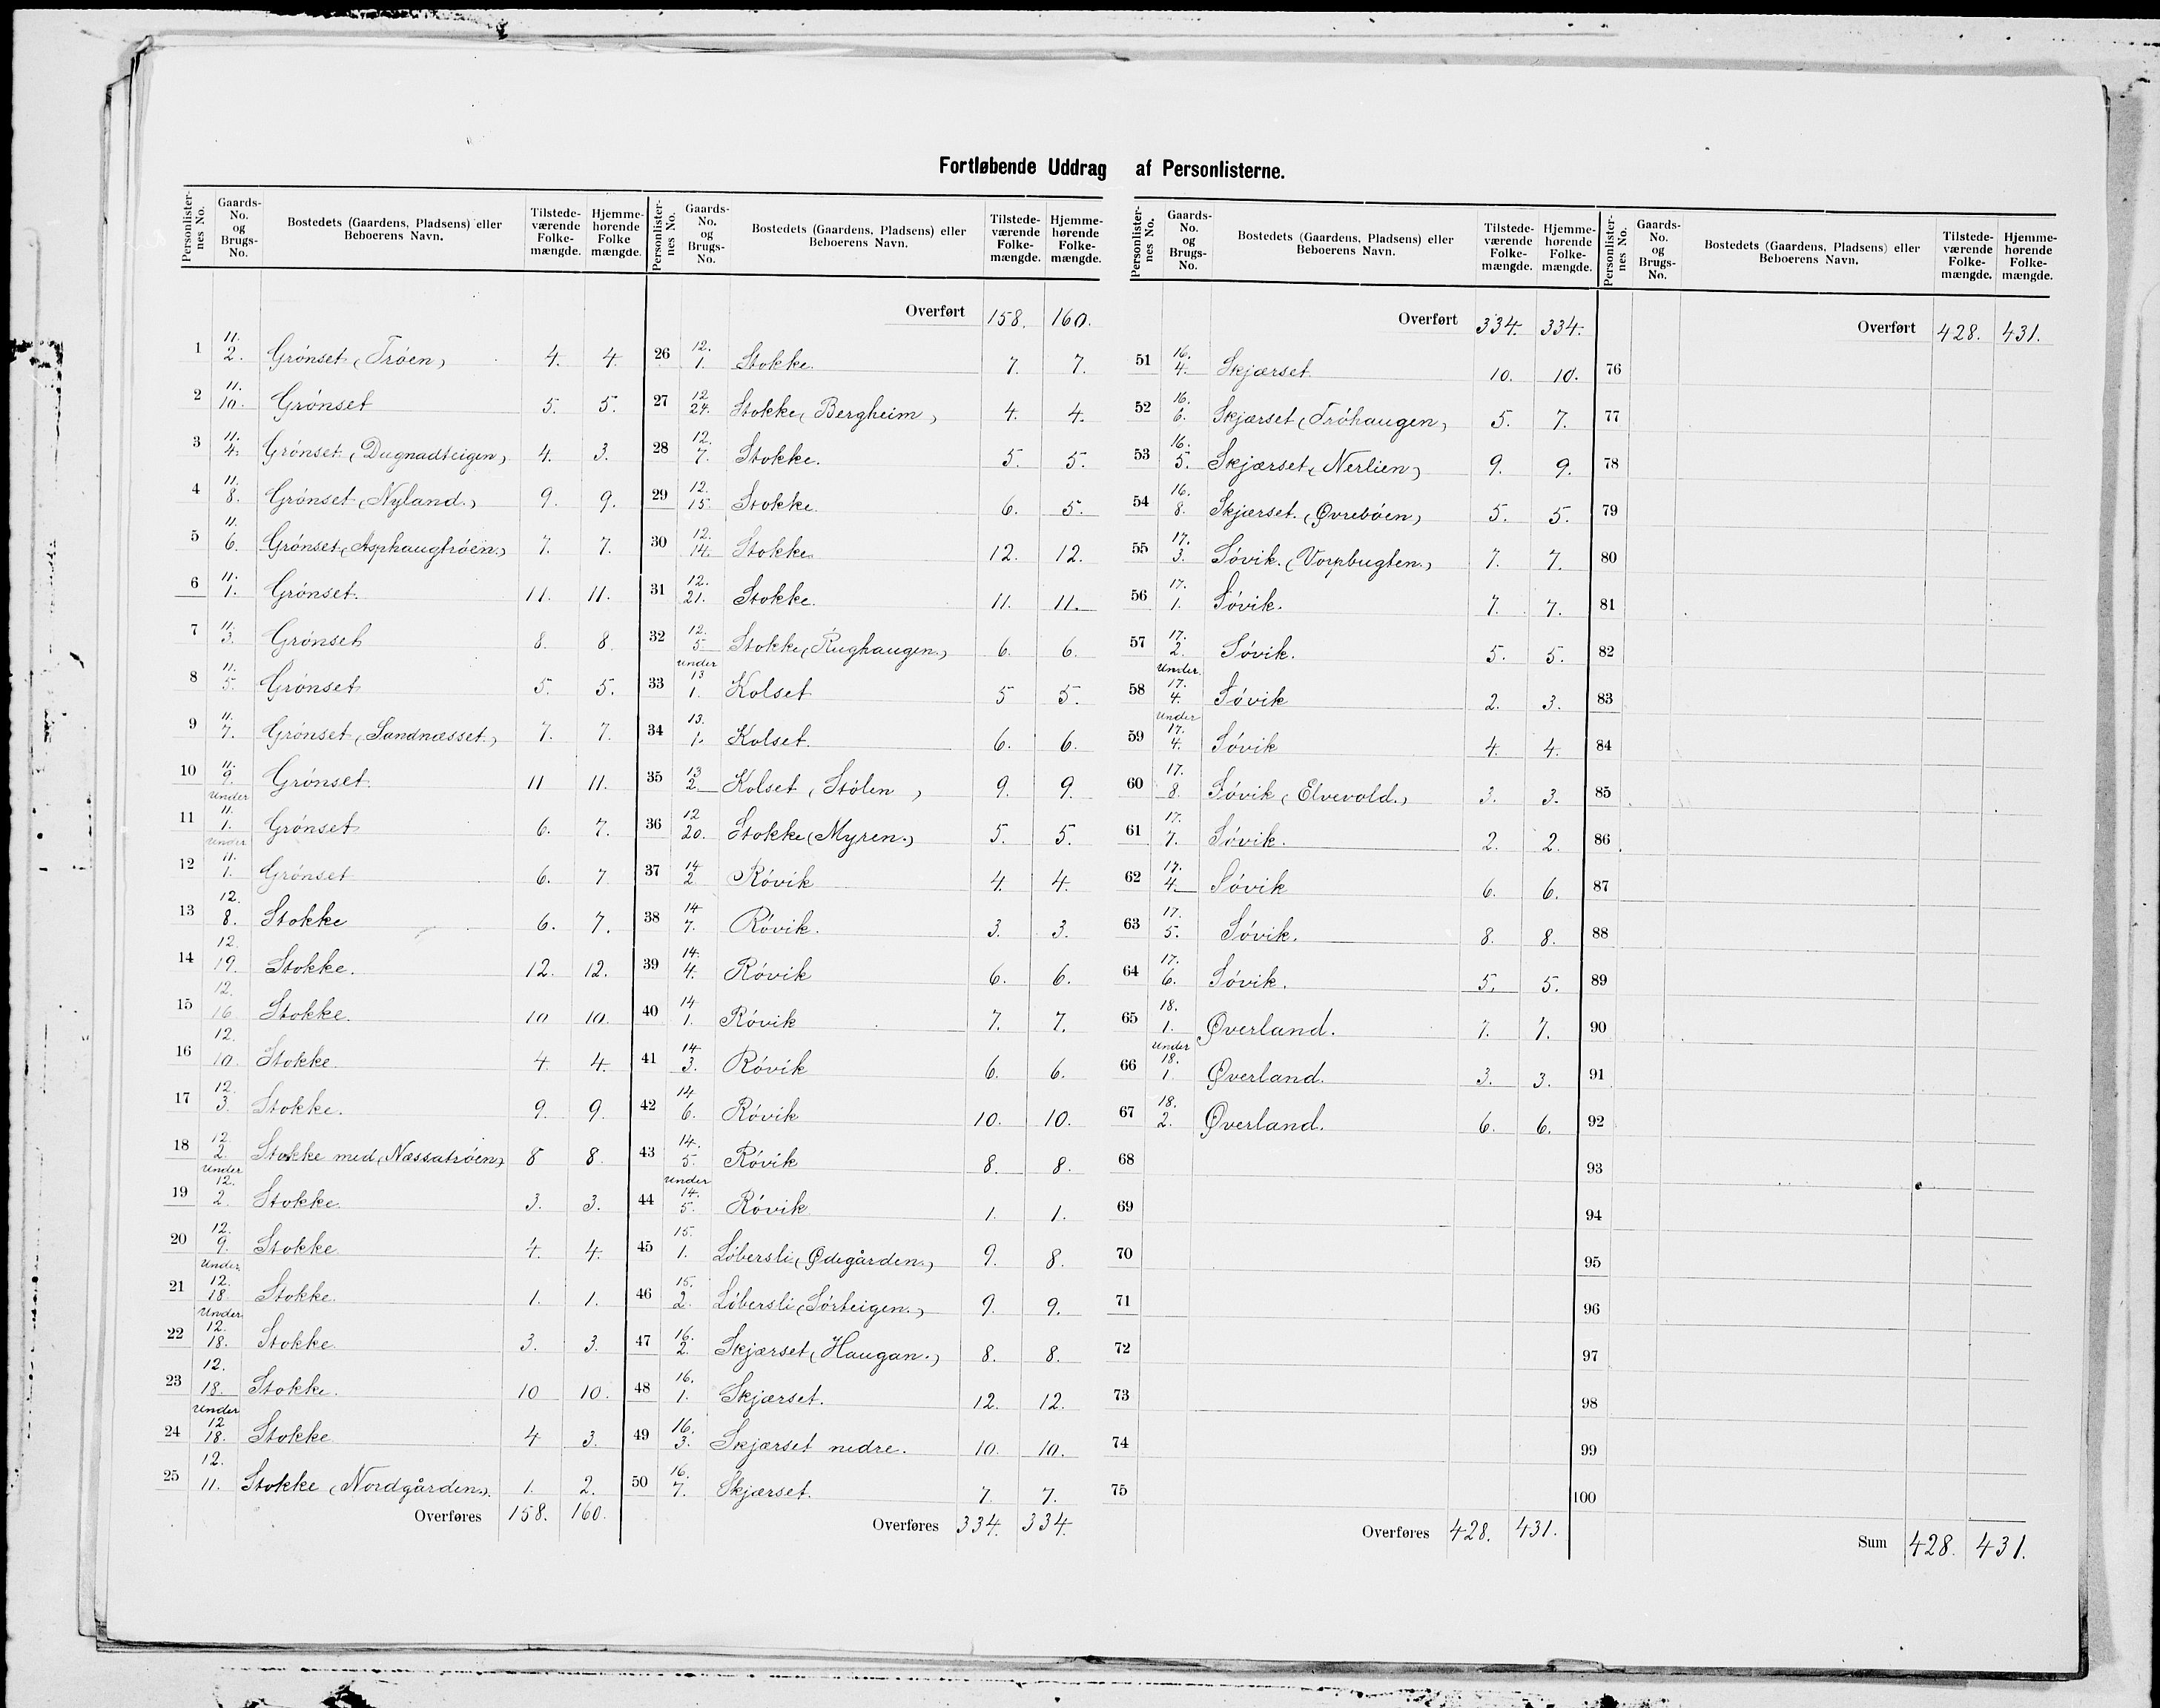 Fortløbende Uddrag af Personlisterne.
Personlister-nes No. Gaards-No. og Brugs-No. Bostedets (Gaardens, Pladsens) eller Beboerens Navn. Tilstede-værende Folke-mængde. Hjemme-hørende Folke mængde.
1 11. 2. Grönset (Tröen) 4. 4.
2 11. 10. Grönset 5. 5.
3 11. 4. Grönset (Dugnadteigen) 4. 3.
4 11. 8. Grönset (Nyland.) 9. 9.
5 11. 6. Grönset (Asphaugtröen.) 7. 7.
6 11. 1. Grönset. 11. 11.
7 11. 3. Grönset 8. 8
8 11. 5. Grönset 5. 5.
9 11. 7. Grönset (Sandnæsset.) 7. 7.
10 11. 9. Grönset. 11 11.
11 Under 11. 1. Grönset 6. 7.
12 Under 11. 1. Grönset 6. 7
13 12. 8. Stokke 6. 7.
14 12. 19. Stokke. 12. 12.
15 12. 16 Stokke. 10 10.
16 12. 10. Stokke 4 4.
17 12. 3. Stokke. 9. 9.
18 12. 2. Stokke med (Næssatröen) 8 8.
19 Under 12. 2. Stokke 3. 3.
20 12. 9. Stokke 4. 4.
21 Under 12. 18. Stokke. 1. 1.
22 Under 12. 18. Stokke. 3. 3.
23 12. 18. Stokke. 10 10.
24 Under 12 18. Stokke 4 3.
25 12. 11. Stokke (Nordgården.). 1. 2.
Overføres 158. 160.
Personlister-nes No. Gaards-No. og Brugs-No. Bostedets (Gaardens, Pladsens) eller Beboerens Navn. Tilstede-værende Folke-mængde. Hjemme-hørende Folke-mængde.
Overført 158. 160.
26 12. 1. Stokke. 7. 7.
27 12 24. Stokke (Bergheim) 4. 4.
28 12. 7. Stokke. 5. 5.
29 12. 15. Stokke. 6. 5.
30 12. 14. Stokke 12. 12.
31 12. 21. Stokke. 11. 11.
32 12. 5. Stokke (Rughaugen.) 6. 6.
33 Under 13 1. Kolset 5 5.
34 13. 1. Kolset. 6. 6.
35 13 2. Kolset (Stölen) 9. 9.
36 12 20. Stokke (Myren.) 5. 5.
37 14 2 Rövik 4. 4.
38 14 7. Rövik. 3. 3.
39 14. 4. Rövik 6. 6.
40 14 1. Rövik 7. 7.
41 14 3. Rövik 6. 6.
42 14 6. Rövik 10. 10.
43 14. 5. Rövik 8. 8.
44 Under 14. 5. Rövik 1. 1.
45 15. 1. Löbersli (Ödegården.) 9. 8.
46 15. 2. Löbersli (Sörteigen.) 9. 9.
47 16. 2. Skjærset (Haugan.) 8. 8.
48 16. 1. Skjærset. 12. 12.
49 16. 3. Skjærset nedre. 10. 10.
50 16. 7. Skjærset. 7. 7.
Overføres 334. 334.
Personlister-nes No. Gaards-No. og Brugs-No. Bostedets (Gaardens, Pladsens) eller Beboerens Navn. Tilstede-værende Folke-mængde. Hjemme-hørende Folke-mængde.
Overført 334. 334.
51 16. 4. Skjærset 10. 10.
52 16. 6. Skjærset (Tröhaugen) 5. 7.
53 16. 5. Skjærset (Nerlien) 9. 9.
54 16. 8. Skjærset. (Øvreböen) 5. 5.
55 17. 3. Sövik. (Vorpbugten.) 7. 7.
56 17. 1. Sövik. 7. 7.
57 17. 2. Sövik. 5. 5.
58 Under 17. 4. Sövik 2. 3.
59 Under 17. 4. Sövik 4. 4.
60 17. 8. Sövik (Elvevold.) 3. 3.
61 17. 7. Sövik. 2. 2.
62 17. 4. Sövik 6. 6.
63 17. 5. Sövik. 8. 8.
64 17. 6. Sövik. 5. 5.
65 18. 1. Øverland. 7. 7.
66 Under 18. 1. Øverland. 3. 3.
67 18. 2. Øverland. 6. 6.
68
69
70
71
72
73
74
75
Overføres 428. 431.
Personlister-nes No. Gaards-No. og Brugs-No. Bostedets (Gaardens, Pladsens) eller Beboerens Navn. Tilstede-værende Folke-mængde. Hjemme-hørende Folke-mængde.
Overført 428. 431.
76
77
78
79
80
81
82
83
84
85
86
87
88
89
90
91
92
93
94
95
96
97
98
99
100
Sum 428. 431.